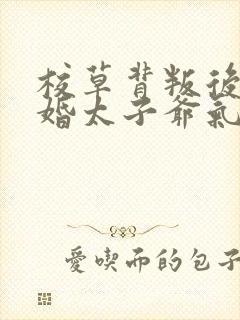 校草背叛後
婚太子爺氣
愛喫雨的包子